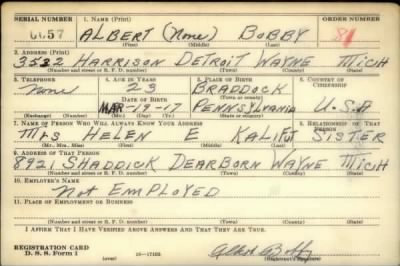 SERIAL NUMBER 1. NAME (Print) ORDER NUMBER
ALBERT (None) BOBBY 81
(First) (Middle) (Last)
2. ADDRESS (Print)
3532 HARRISON DETROIT WAYNE MICH
(Number and street or R. F. D. number) (Town) (County) (State)
3. TELEPHONE 4. AGE IN YEARS 5. PLACE OF BIRTH 6. COUNTRY OF CITIZENSHIP
None 23 BRADDOCK
DATE OF BIRTH (Town or county)
MAR-19-17 PENNSYLVANIA U.S.A
7. NAME OF PERSON WHO WILL ALWAYS KNOW YOUR ADDRESS 8. RELATIONSHIP OF THAT PERSON
MRS HELEN E SISTER
(Mr., Mrs., Miss) (First) (Middle) (Last)
9. ADDRESS OF THAT PERSON
8921 SHADDICK DEARBORN WAYNE MICH
(Number and street or R. F. D. number) (Town) (County) (State)
10. EMPLOYER'S NAME
NOT EMPLOYED
11. PLACE OF EMPLOYMENT OR BUSINESS
(Number and street or R. F. D. number) (Town) (County) (State)
I AFFIRM THAT I HAVE VERIFIED ABOVE ANSWERS AND THAT THEY ARE TRUE.
REGISTRATION CARD
D. S. S. Form 1 Albert Bobby
(Registrant's signature)